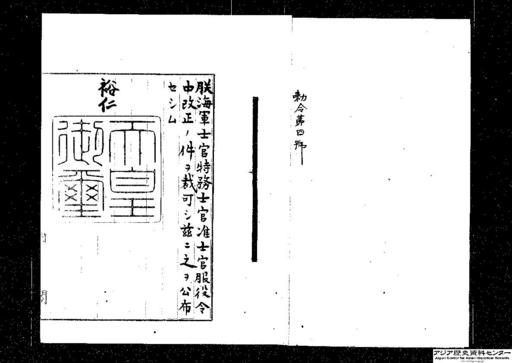 勅令第四號
朕海軍士官特務士官准士官服役令
中改正ノ件ヲ裁可シ茲ニ之ヲ公布
セシム
裕仁
天皇
御璽
アジア歴史資料センター
Japan Center for Asian Historical Records